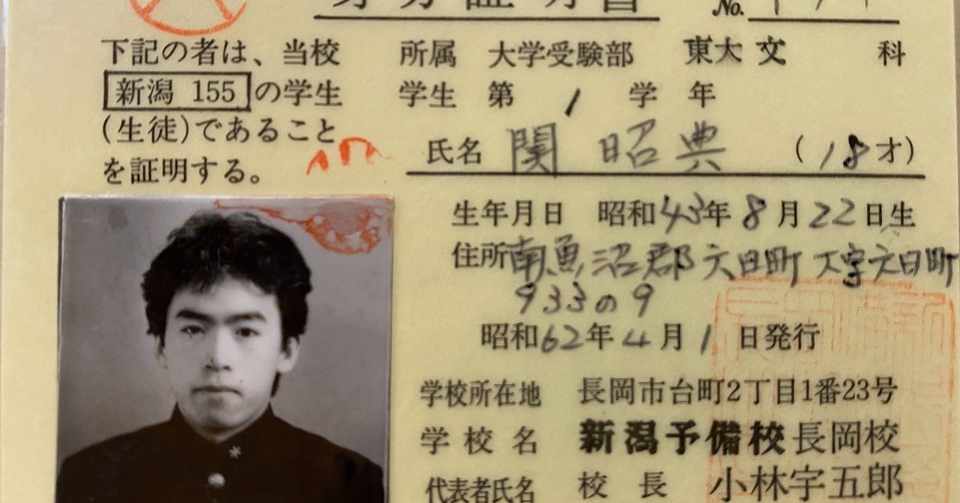 身分証明書
No.
下記の者は、当校
新潟 155 の学生
(生徒)であること
を証明する。
所属 大学受験部 東大文科
学生 第 1 学年
氏名 関 昭典 (18才)
生年月日 昭和43年8月22日生
住所 南魚沼郡六日町大字六日町
933の9
昭和62年4月1日発行
学校所在地 長岡市台町2丁目1番23号
学校名 新潟予備校長岡校
代表者氏名 校長 小林宇五郎